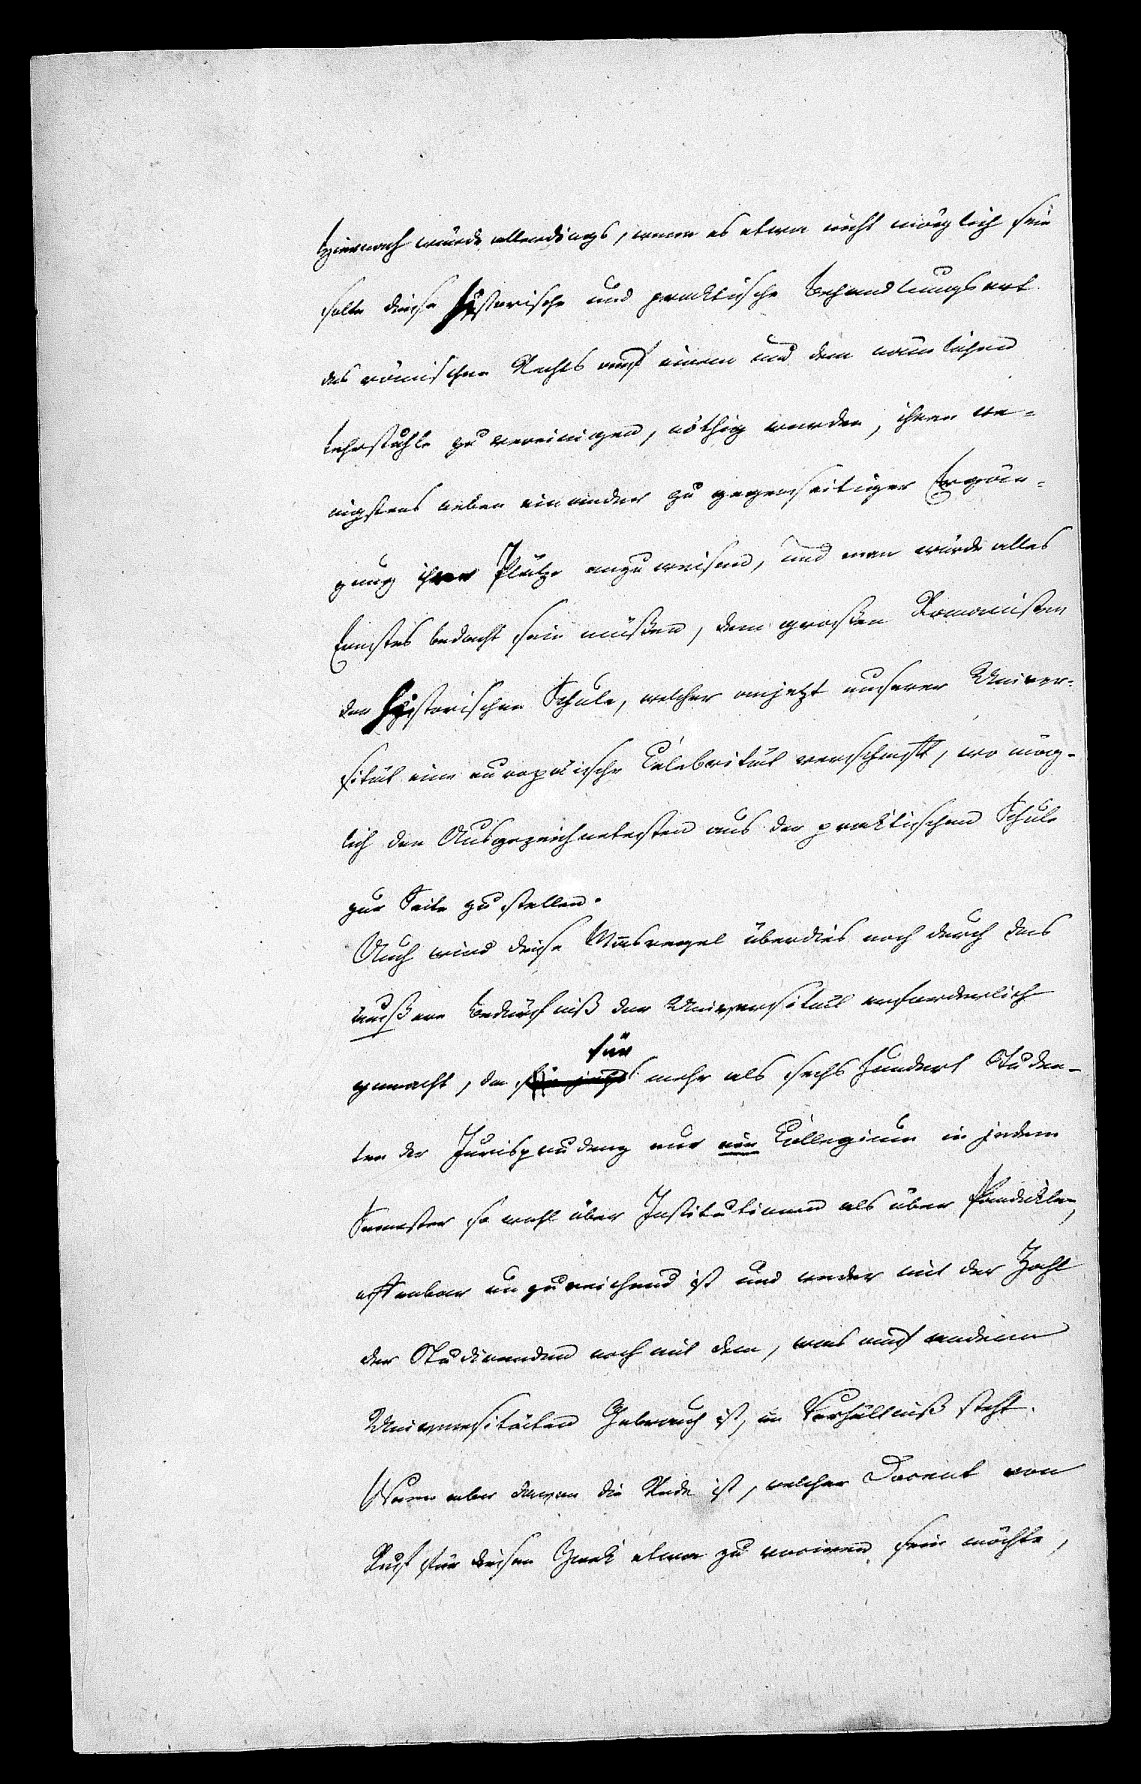 Hiernach würde allerdings, wenn es etwa nicht möglich sein
solte diese historische und praktische Behandlungsart
des römischen Rechts auf einem und dem nämlichen
Lehrstuhle zu vereinigen, nöthig werden, ihnen we-
nigstens neben einander zu gegenseitiger Ergän-
zung ihre Plätze anzuweisen, und man würde alles
Ernstes bedacht sein müßen, dem großen Romanisten
der historischen Schule, welcher anjetzt unserer Univer-
sität eine europäische Celebrität verschafft, wo mög-
lich den Ausgezeichnetesten aus der praktischen Schule
zur Seite zu stellen.
Auch wird diese Masregel überdies noch durch das
äußere Bedürfniß der Universität erforderlich
gemacht, da für mehr als sechs hundert Studen-
ten der Jurisprudenz nur ein Collegium in jedem
Semester so wohl über Institutionen als über Pandekten,
offenbar unzureichend ist und weder mit der Zahl
der Studirenden noch mit dem, was auf anderen
Universitäten Gebrauch ist, in Verhältniß steht.
Wenn aber davon die Rede ist, welcher Docent von
Ruf für diesen Zwek etwa zu vociren sein möchte,